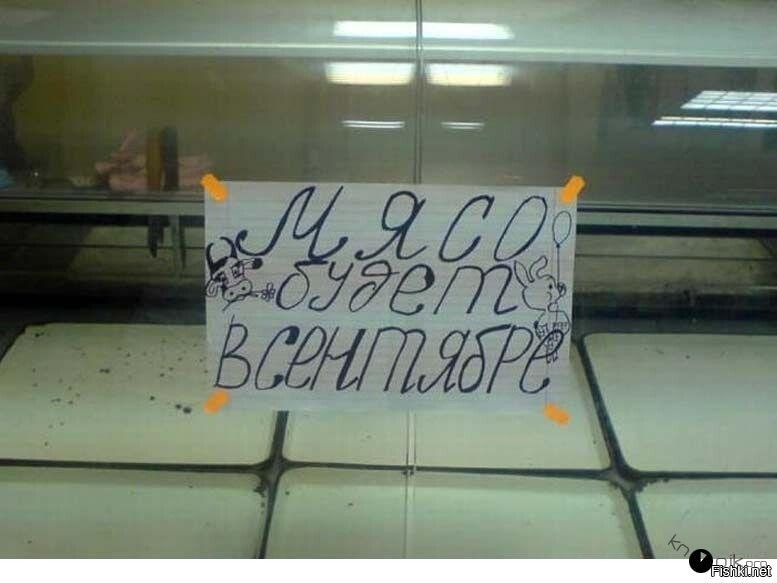 Мясо
будет
в сентябре
Fishki.net